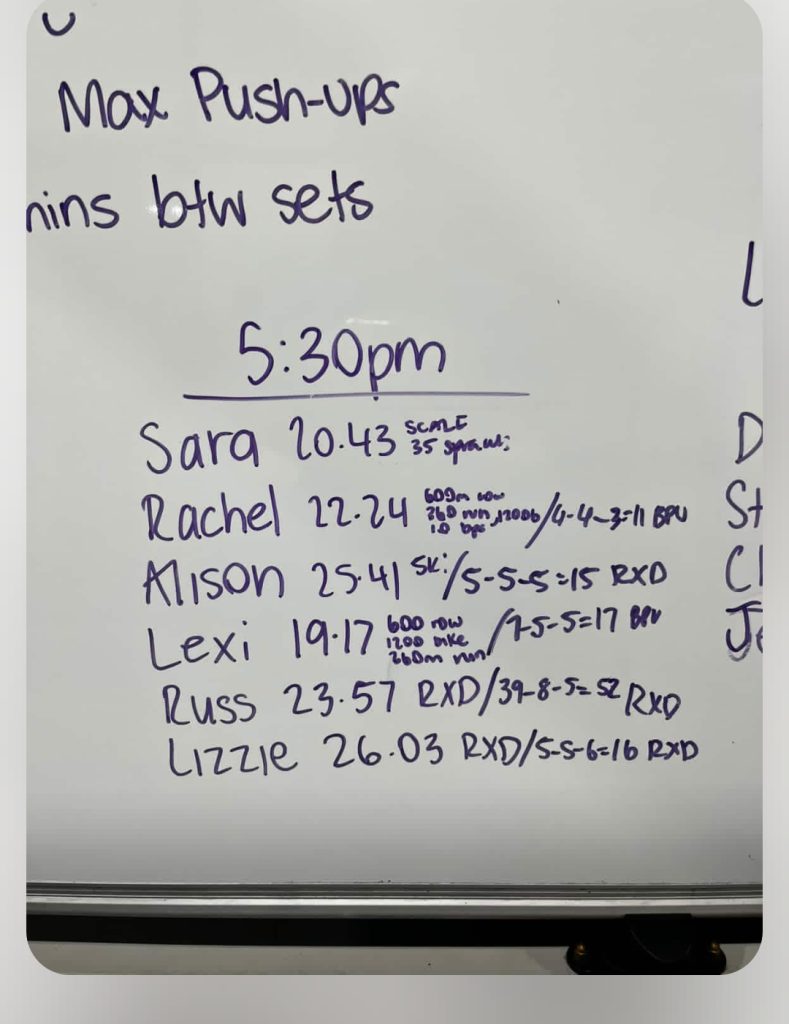 Max Push-ups
btw sets
5:30pm
Sara 20.43 SCALE
35
Rachel 22.24 600m row
260 run, 1200b /4-4-3=11 BPU
10
Alison 25.41 /5-5-5=15 RXD
Lexi 19.17 600 row
1200 bike /7-5-5=17 BPU
260m run
Russ 23.57 RXD/39-8-5=52 RXD
Lizzie 26.03 RXD/5-5-6=16 RXD
L
D
St
Cl
Je